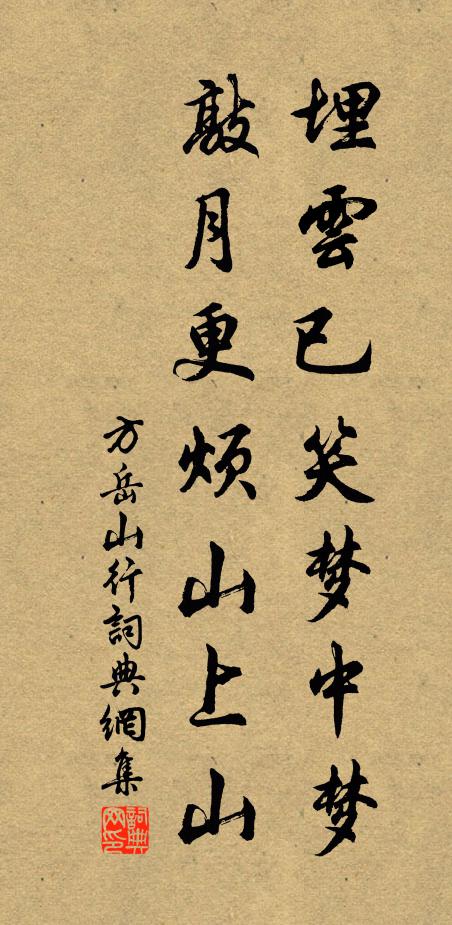 埋雲已笑梦中梦
敲月更烦山上山
方岳山行詞典網集
詞典网印